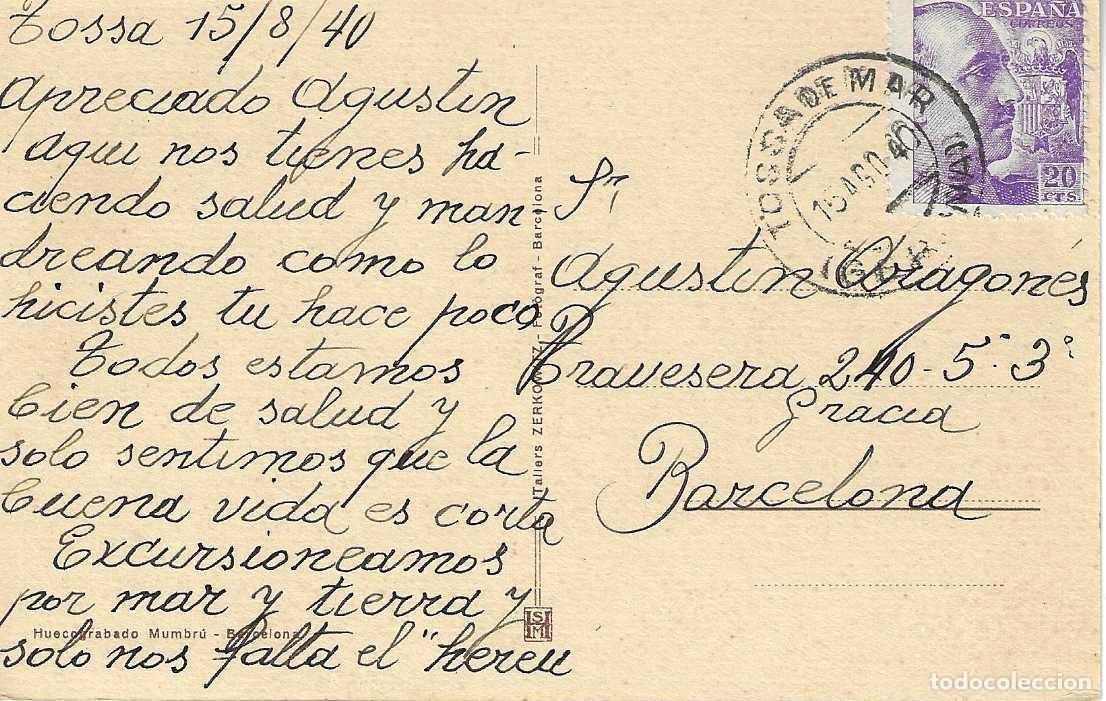 Tossa 15/8/40
Apreciado Agustin
aqui nos tienes ha-
ciendo salud y man
dreando como lo
hicistes tu hace poco
Todos estamos
bien de salud y
solo sentimos que la
buena vida es corta
Excursioneamos
por mar y tierra y
solo nos falta el "hereu
Huecograbado Mumbrú - Barcelona
Tallers ZERKOWITZ - Fotograf - Barcelona
SHM
ESPAÑA
CORREOS
20
CTS
TOSSA DE MAR (GERONA)
15 AGO 40
Sr
Agustin Aragonés
Travesera 240-5º 3ª
Gracia
Barcelona
todocoleccion